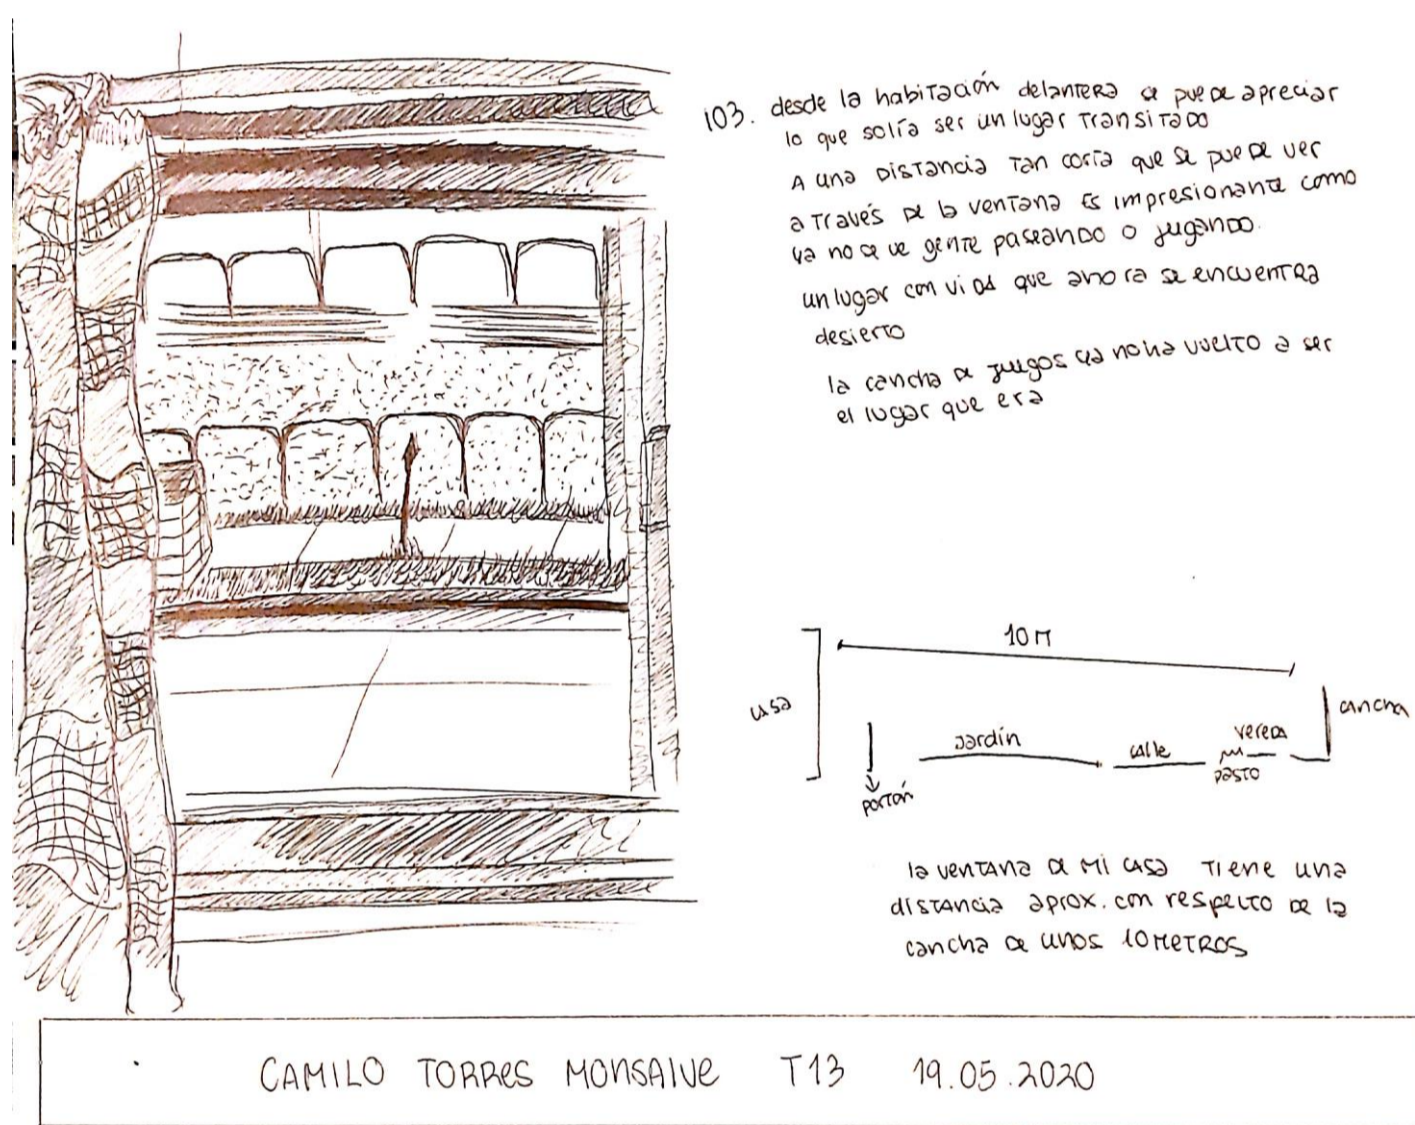 103. desde la habitación delantera se puede apreciar
lo que solía ser un lugar transitado
A una distancia tan corta que se puede ver
a través de la ventana es impresionante como
ya no se ve gente paseando o jugando.
un lugar con vida que ahora se encuentra
desierto
la cancha de juegos ya no ha vuelto a ser
el lugar que era
10 M
casa
cancha
jardín
calle
vereda
pasto
portón
la ventana de mi casa tiene una
distancia aprox. con respecto de la
cancha de unos 10 metros
CAMILO TORRES MONSALVE T13 19.05.2020